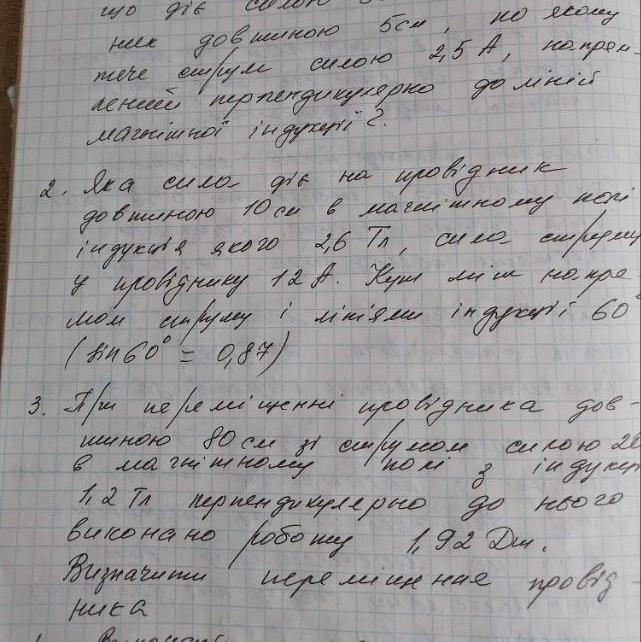 що діє силою
ник довжиною 5см, по якому
тече струм силою 2,5 А, напрям-
лений перпендикулярно до ліній
магнітної індукції?
2. Яка сила діє на провідник
довжиною 10см в магнітному полі
індукція якого 2,6 Тл, сила струму
у провіднику 12А. Кут між напря
мом струму і лініями індукції 60°
(sin60° = 0,87)
3. При переміщенні провідника дов-
жиною 80см зі струмом силою 20
в магнітному полі з індукці
1,2 Тл перпендикулярно до нього
виконано роботу 1,92 Дж.
Визначити переміщення провід
ника